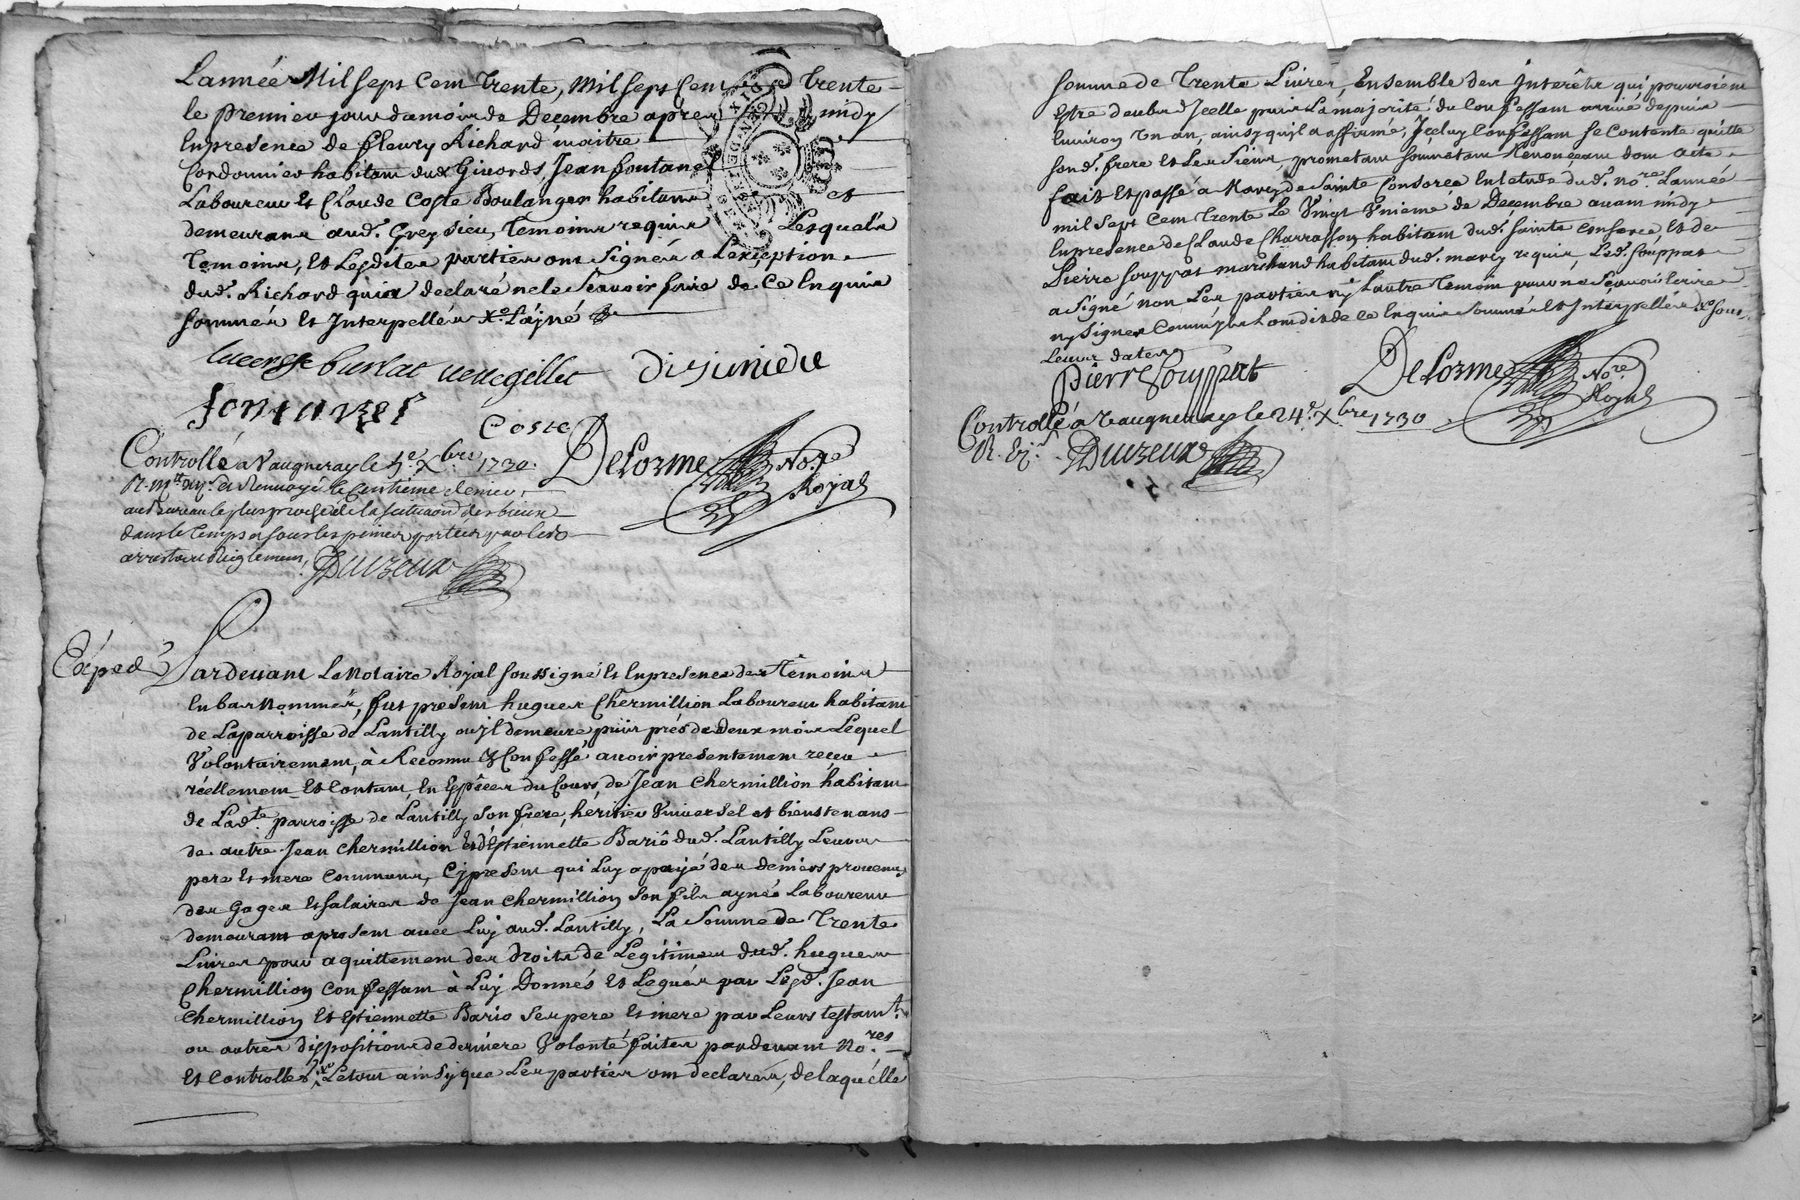 L'année Mil Sept Cent Trente, Mil Sept Cent Trente
le premier jour du mois de Decembre apres midy
En presence de fleury Richard maitre
Cordonnier habitant dud. Girords, Jean fontanel
Laboureur et Claude Coste Boulanger habitans et
demeurans aud. Greysieu, temoins requis Lesquels
temoins, et Lesdites parties ont Signés a L'exception
dud. Richard qui a declaré ne le Scavoir faire de Ce Enquis
Sommés Et Interpellés
burlat gillet disjunieu
fontanel
Coste Delorme No.re Royal
Controllé a Vaugneray le 4e Xbre 1730.
et Renvoyé le Centieme denier
au Bureau le plus proche de la scituaon des biens
dans le temps et sous les peines portées par les
arrests et Reiglemens, Duizeux
Expedé Pardevant Le Notaire Royal Soussigné Et En presence des Temoins
En bas Nommés, fut present hugues Chermillion Laboureur habitant
de La parroisse de Lantilly ou il demeure puis prés de deux mois Lequel
Volontairement, à Reconnu & Confessé avoir presentement receu
réellement Et Contant, En Espêces du Cours, de Jean Chermillion habitant
de Lad.te parroisse de Lantilly Son frere, heritier Universel et bienstenans
de autre Jean Chermillion Et d'Estiennette Bariô dud. Lantilly Leurs
pere Et mere Communs, Cy present qui Luy a payé des deniers provenus
des Gages Et Salaires de Jean Chermillion Son fils aynée Laboureur
demeurant a present avec Luy aud. Lantilly, La Somme de Trente
Livres pour aquittement des droits de Légitimes dud. hugues
Chermillion Confessant à Luy Donnés Et Legués par Led. Jean
Chermillion Et Estiennette Bario Ses pere Et mere par Leurs testam.t
ou autres dispositions de derniere Volonté faites pardevant No.res
Et Controlles, Le tout ainsy que Les parties ont declarés, de laquelle
Somme de Trente Livres, Ensemble des Interêts qui pourroient
Estre deubs d'Icelle puis La majorité du Confessant arrivé depuis
Environ Un an, ainsy qu'il a affirmé, Iceluy Confessant Se Contente quitte
Sond. frere Et Les Siens, prometant Soumetant Renonceant dont acte
fait Et passé a Marcy de Sainte Consorce En L'etude dud. no.re L'année
mil Sept Cent Trente Le Vingt Unieme de Decembre avant midy
En presence de Claude Charrasson habitant dud. Sainte Consorce, Et de
Pierre Souppat marchand habitant dud. marcy requis, Led. Souppat
a Signé non Les parties ny L'autre temoin pour ne Scavoir Ecrire
ny Signer Comme ils ont dit de ce Enquis Sommés Et Interpellés
Leurs dates
pierre Souppat Delorme No.re Royal
Controllé a Vaugneray le 24e Xbre 1730
Duizeux